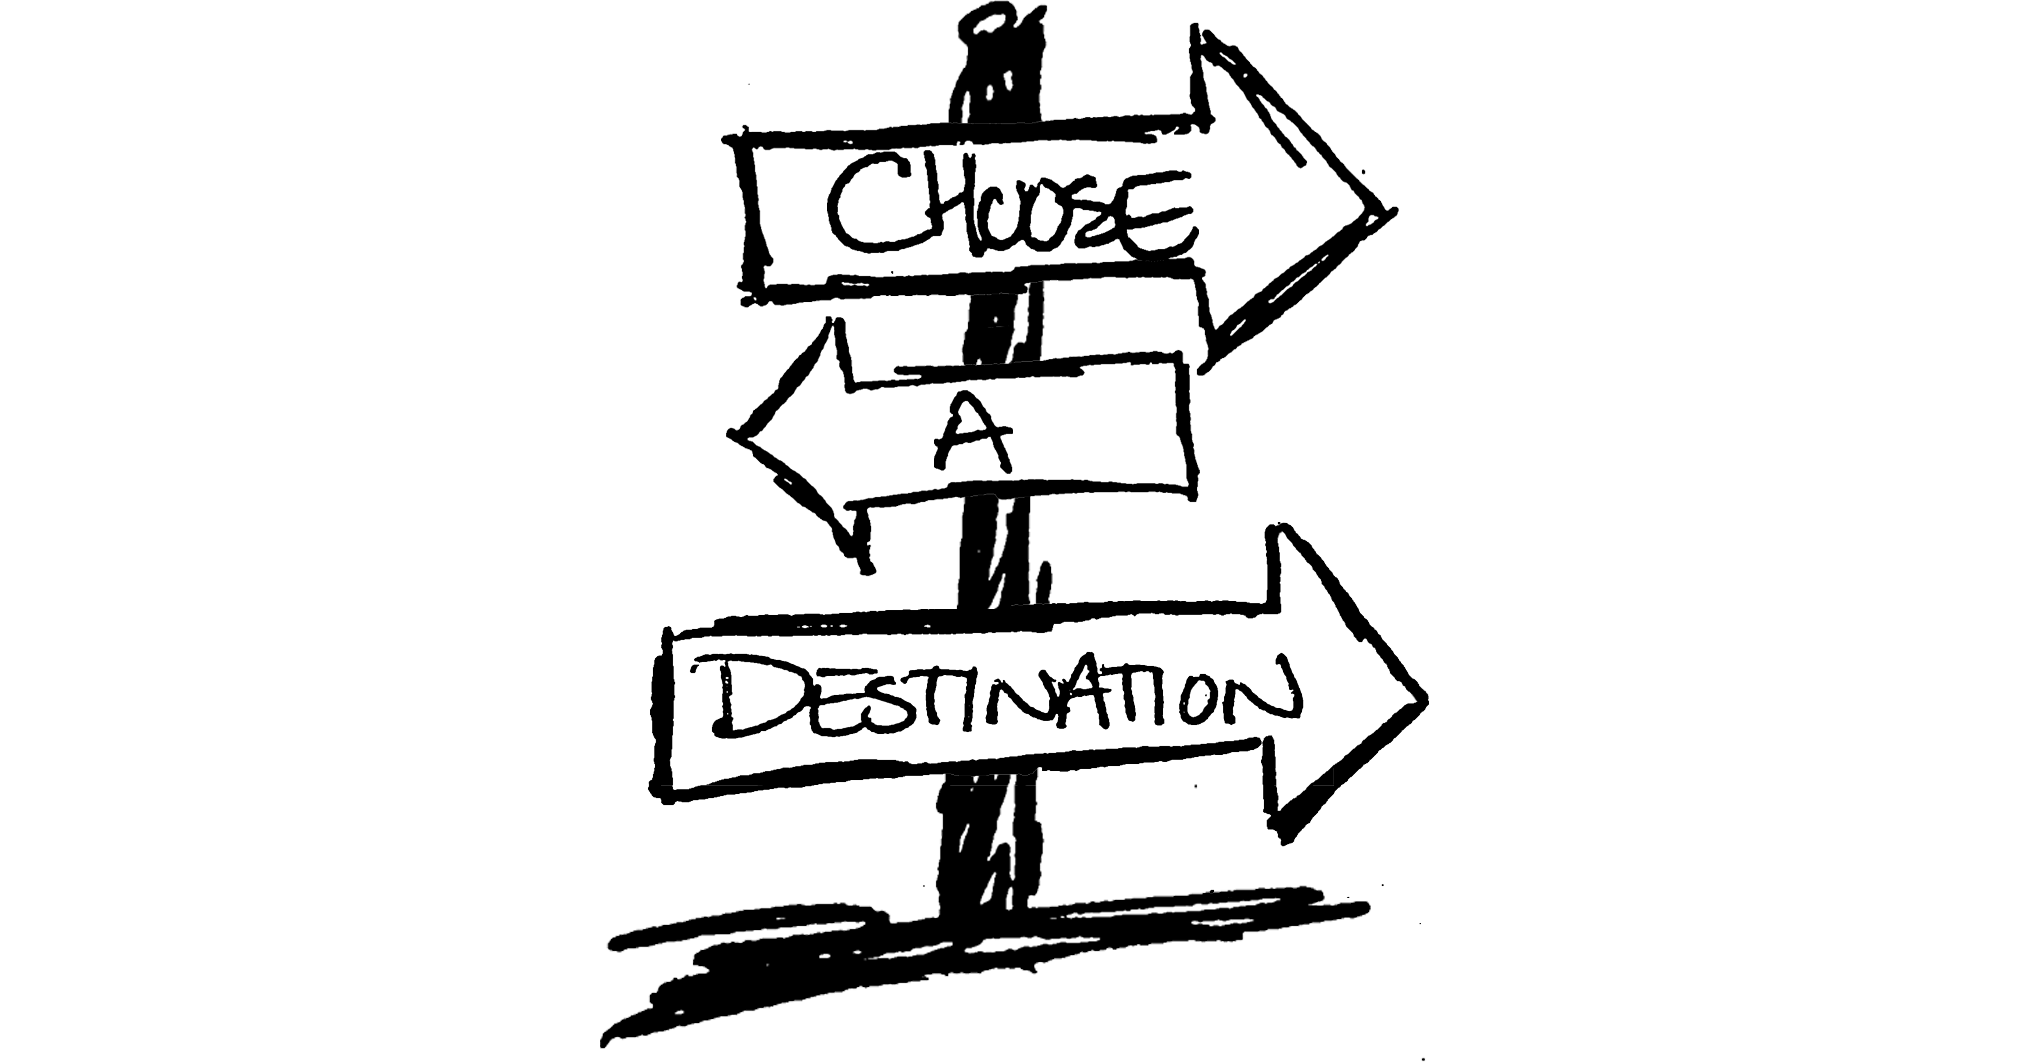 CHOOSE
A
DESTINATION